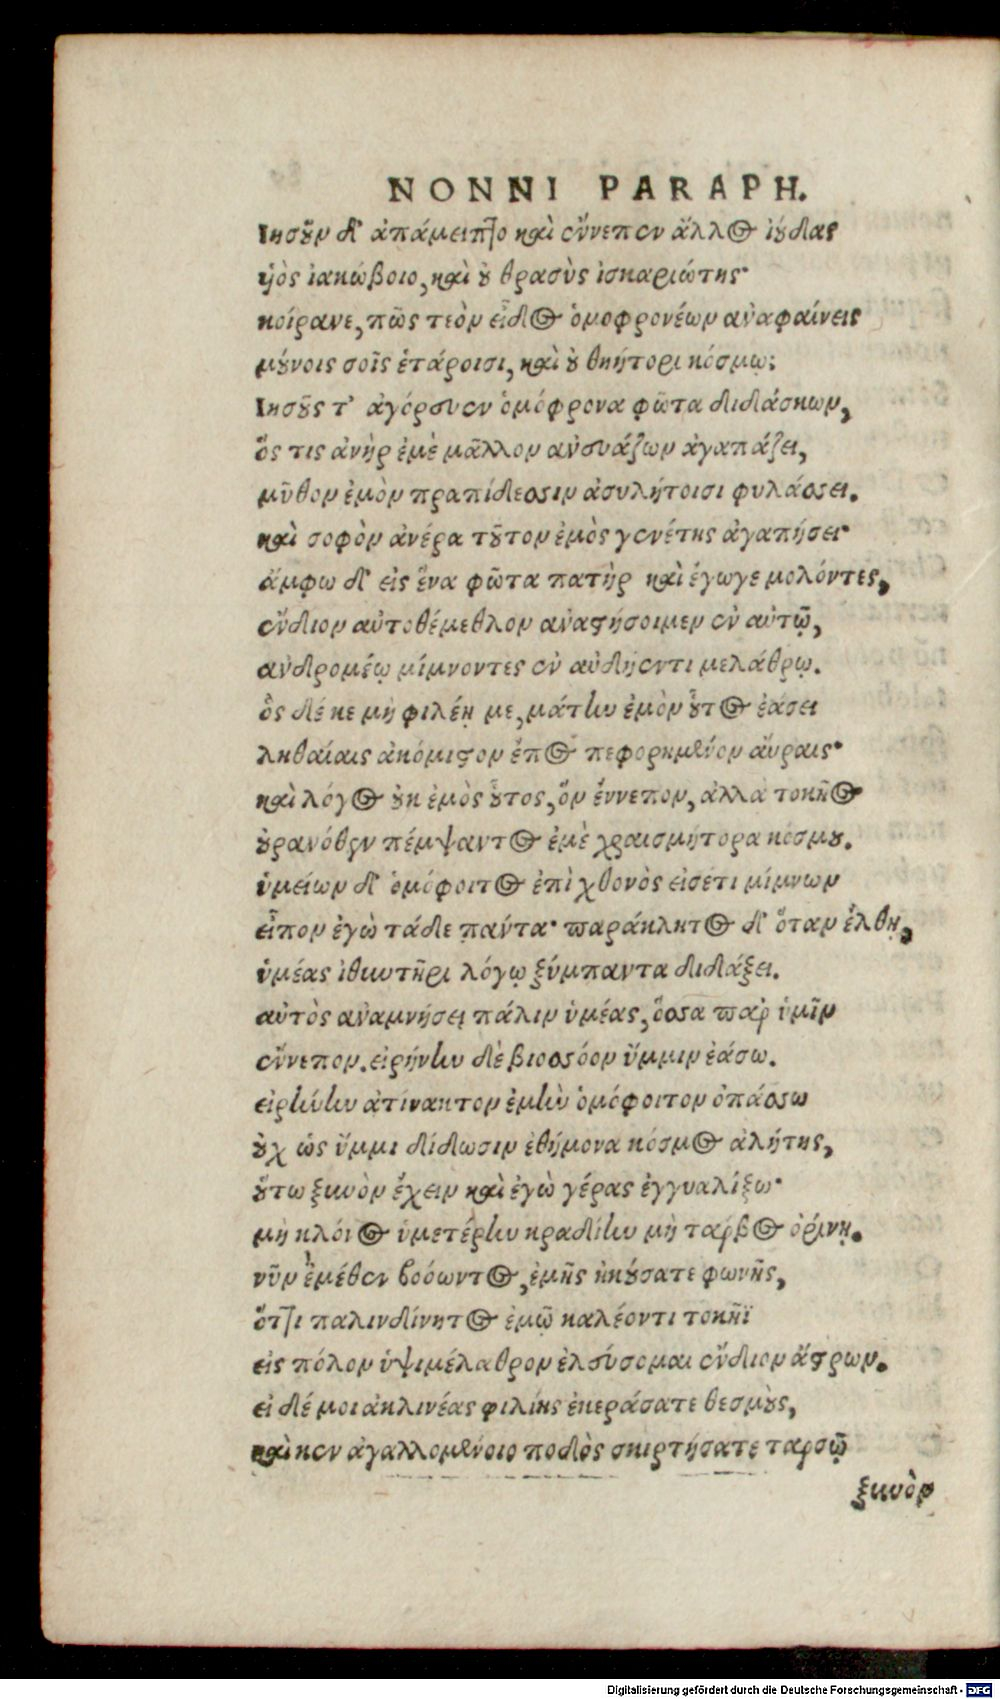 NONNI PARAPH.
Ιησοῦν δ' ἀπάμειπτο καὶ ἔννεπεν ἄλλος ἰούδας
ὑὸς ἰακώβοιο, καὶ οὐ θρασὺς ἰσκαριώτης·
κοίρανε, πῶς τεὸν εἶδος ὁμοφρονέων ἀναφαίνεις
μούνοις σοῖς ἑτάροισι, καὶ οὐ θηήτορι κόσμῳ;
Ιησοῦς τ' ἀγόρευεν ὁμόφρονα φῶτα διδάσκων,
ὅς τις ἀνὴρ ἐμὲ μᾶλλον ἀνευάζων ἀγαπάζει,
μῦθον ἐμὸν πραπίδεσσιν ἀσυλήτοισι φυλάσσει.
καὶ σοφὸν ἀνέρα τοῦτον ἐμὸς γενέτης ἀγαπήσει·
ἄμφω δ' εἰς ἕνα φῶτα πατὴρ καὶ ἔγωγε μολόντες,
ἔνδιον αὐτοθέμεθλον ἀναστήσοιμεν ἐν αὐτῷ,
ἀνδρομέῳ μίμνοντες ἐν αὐδήεντι μελάθρῳ.
ὃς δέ κε μὴ φιλέῃ με, μάτην ἐμὸν οὗτος ἐάσει
ληθαίαις ἀκόμιστον ἔπος πεφορημένον αὔραις·
καὶ λόγος οὐκ ἐμὸς οὗτος, ὅν ἔννεπον, ἀλλὰ τοκῆος
οὐρανόθεν πέμψαντος ἐμὲ χραισμήτορα κόσμου.
ὑμείων δ' ὁμόφοιτος ἐπὶ χθονὸς εἰσέτι μίμνων
εἶπον ἐγὼ τάδε πάντα· παράκλητος δ' ὅταν ἔλθῃ,
ὑμέας ἰθυντῆρι λόγῳ ξύμπαντα διδάξει.
αὐτὸς ἀναμνήσει πάλιν ὑμέας, ὅσσα παρ' ὑμῖν
ἔννεπον. εἰρήνην δὲ βιοσσόον ὔμμιν ἐάσω.
εἰρήνην ἀτίνακτον ἐμὴν ὁμόφοιτον ὀπάσσω
οὐχ ὡς ὔμμι δίδωσιν ἐθήμονα κόσμος ἀλήτης,
οὕτω ξυνὸν ἔχειν καὶ ἐγὼ γέρας ἐγγυαλίξω·
μὴ κλόνος ὑμετέρην κραδίην μὴ τάρβος ὀρίνῃ.
νῦν ἐμέθεν βοόωντος, ἐμῆς ἠκούσατε φωνῆς,
ὅττι παλινδίνητος ἐμῷ καλέοντι τοκῆϊ
εἰς πόλον ὑψιμέλαθρον ἐλεύσομαι ἔνδιον ἄστρων.
εἰ δέ μοι ἀκλινέας φιλίης ἐκεράσατε θεσμοὺς,
καὶ κεν ἀγαλλομένοιο ποδὸς σκιρτήσατε ταρσῷ
ξυνὸν
Digitalisierung gefördert durch die Deutsche Forschungsgemeinschaft - DFG